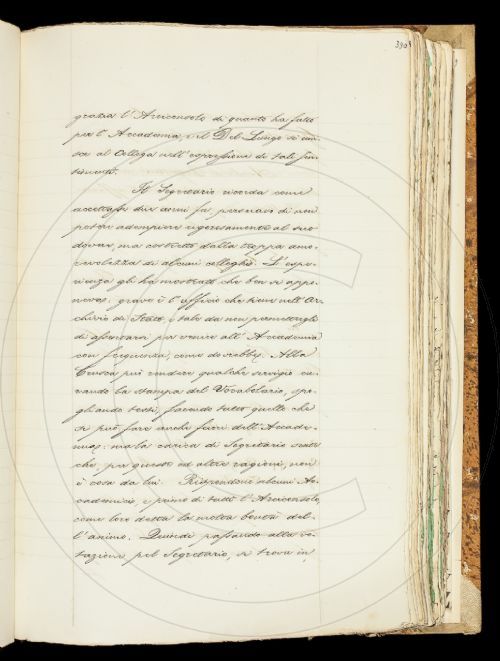 390
grazia l'Arciconsolo di quanto ha fatto
per l'Accademia, e il Del Lungo si uni-
sce al Collega nell'espressione di tali sen-
timenti.
Il Segretario ricorda come
accettasse due anni fa, persuaso di non
poter adempiere rigorosamente al suo
dovere, ma costretto dalla troppa amo-
revolezza di alcuni colleghi. L'espe-
rienza gli ha mostrato che ben si appo-
neva: grave è l'ufficio che tiene nell'Ar-
chivio di Stato, e tale da non permettergli
di assentarsi per venire all'Accademia
con frequenza, come dovrebbe. Alla
Crusca può rendere qualche servigio cu-
rando la stampa del Vocabolario, spo-
gliando testi, facendo tutto quello che
si può fare anche fuori dell'Accade-
mia: ma la carica di Segretario sente
che, per questo ed altre ragioni, non
è cosa da lui. Rispondono alcuni Ac-
cademici, e primo di tutti l'Arciconsolo,
come loro detta la molta bontà del-
l'animo. Quindi passando alla vo-
tazione pel Segretario, si trova in,